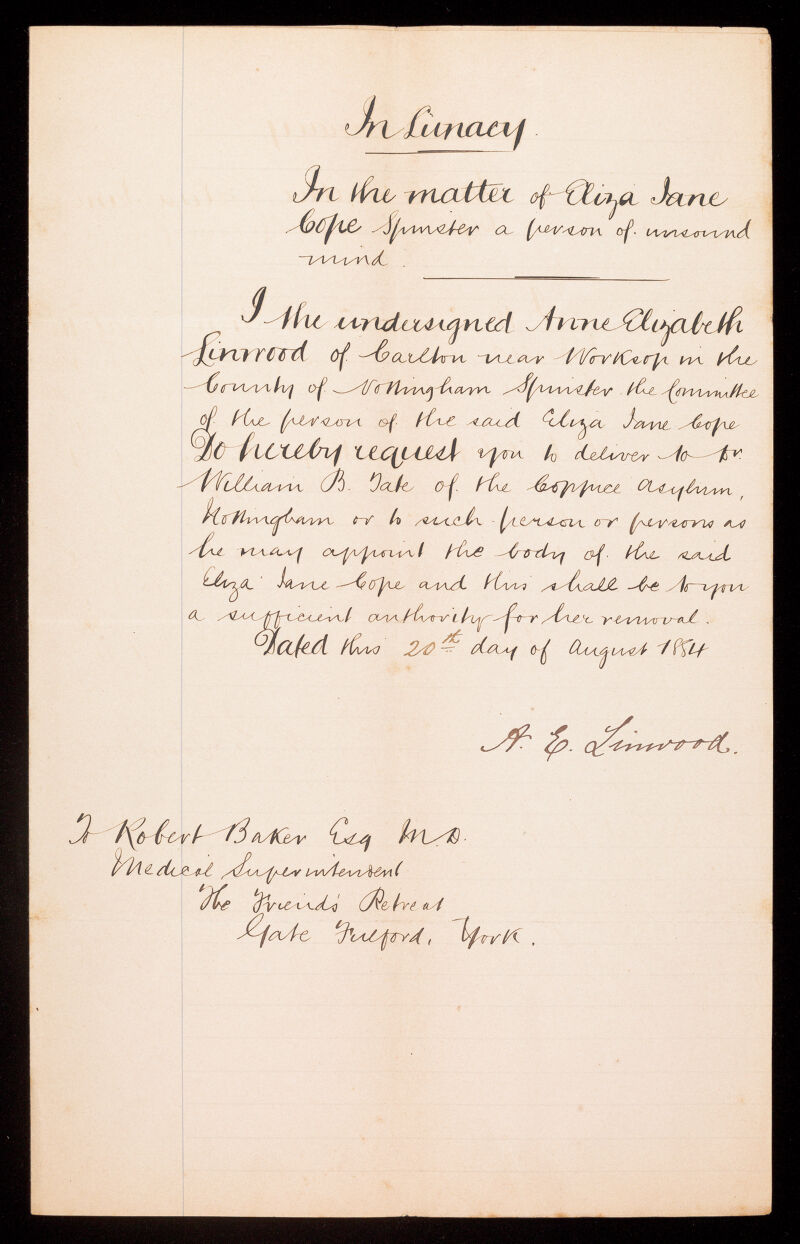 In Lunacy.
In the matter of Eliza Jane
Cope Spinster a person of unsound
mind.
I the undersigned Anne Elizabeth
Linwood of Carlton near Worksop in the
County of Nottingham Spinster the Committee
of the person of the said Eliza Jane Cope
Do hereby request you to deliver to Dr.
William B. Tate of the Coppice Asylum,
Nottingham or to such person or persons as
he may appoint the body of the said
Eliza Jane Cope and this shall be to you
a sufficient authority for her removal.
Dated this 20th day of August 1884
A. E. Linwood.
To Robert Baker Esq M.D.
Medical Superintendent
The Friend's Retreat
Gate Fulford, York.